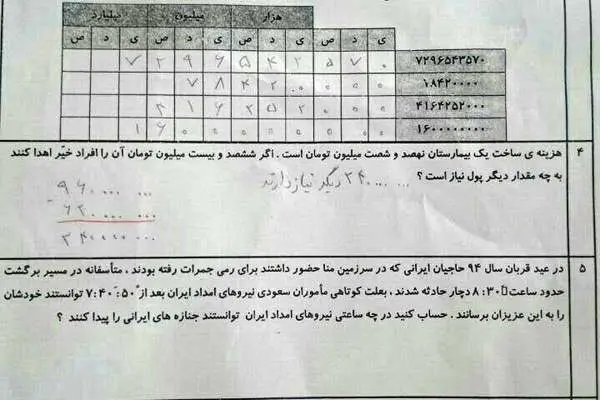 هزار میلیون میلیارد
ی د ص ی د ص ی د ص ی د ص
۷۲۹۶۵۴۳۵۷۰ ۷ ۲ ۹ ۶ ۵ ۴ ۳ ۵ ۷ ۰
۱۸۴۲۰۰۰۰
۴۱۶۴۲۵۲۰۰۰
۱۶۰۰۰۰۰۰۰۰ ۱ ۶ ۰ ۰ ۰ ۰ ۰ ۰ ۰ ۰
۴ هزینه ی ساخت یک بیمارستان نهصد و شصت میلیون تومان است . اگر ششصد و بیست میلیون تومان آن را افراد خیّر اهدا کنند
به چه مقدار دیگر پول نیاز است ؟ ۳۴۰۰۰۰۰۰۰ دیگر نیاز دارند
۹۶۰۰۰۰۰۰۰
- ۶۲۰۰۰۰۰۰۰
۳۴۰۰۰۰۰۰۰
۵ در عید قربان سال ۹۴ حاجیان ایرانی که در سرزمین منا حضور داشتند برای رمی جمرات رفته بودند ، متأسفانه در مسیر برگشت
حدود ساعت ۸:۳۰ دچار حادثه شدند ، بعلت کوتاهی مأموران سعودی نیروهای امداد ایران بعد از ۷:۴۰:۵۰ توانستند خودشان
را به این عزیزان برسانند . حساب کنید در چه ساعتی نیروهای امداد ایران توانستند جنازه های ایرانی را پیدا کنند ؟